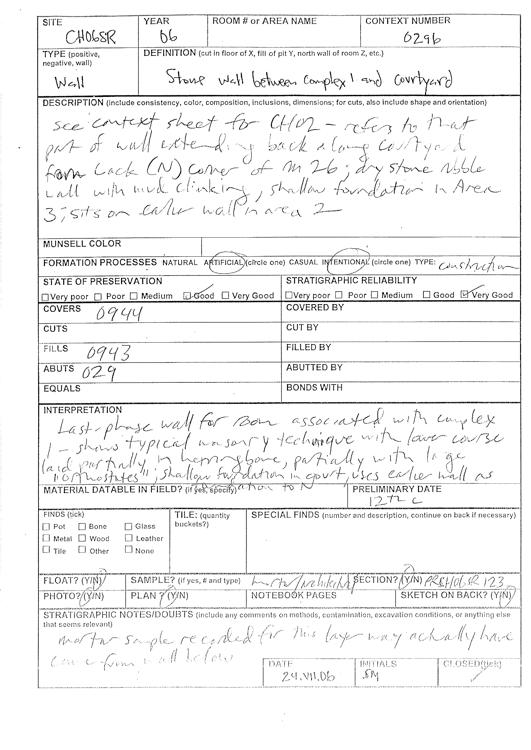 SITE YEAR ROOM # or AREA NAME CONTEXT NUMBER
CH06SR 06 0296
TYPE (positive, negative, wall) DEFINITION (cut in floor of X, fill of pit Y, north wall of room Z, etc.)
Wall Stone wall between complex 1 and courtyard
DESCRIPTION (include consistency, color, composition, inclusions, dimensions; for cuts, also include shape and orientation)
see context sheet for CH02 - refers to that
part of wall extending back along courtyard
from back (N) corner of m 26; dry stone rubble
wall with mud chinking, shallow foundation in Area
3; sits on earlier wall in area 2
MUNSELL COLOR
FORMATION PROCESSES NATURAL ARTIFICIAL (circle one) CASUAL INTENTIONAL (circle one) TYPE: construction
STATE OF PRESERVATION STRATIGRAPHIC RELIABILITY
Very poor Poor Medium Good Very Good Very poor Poor Medium Good Very Good
COVERS 0944 COVERED BY
CUTS CUT BY
FILLS 0943 FILLED BY
ABUTS 029 ABUTTED BY
EQUALS BONDS WITH
INTERPRETATION
Last-phase wall for room associated with complex
1 - shows typical masonry technique with lower course
laid partially in herringbone, partially with large
"orthostates"; shallow foundation in court, uses earlier wall as
foundation to N
MATERIAL DATABLE IN FIELD? (if yes, specify) PRELIMINARY DATE
12th C
FINDS (tick) TILE: (quantity buckets?) SPECIAL FINDS (number and description, continue on back if necessary)
Pot Bone Glass
Metal Wood Leather
Tile Other None
FLOAT? (Y/N) SAMPLE? (if yes, # and type) mortar/ SECTION? (Y/N) 123
PHOTO? (Y/N) PLAN? (Y/N) NOTEBOOK PAGES SKETCH ON BACK? (Y/N)
STRATIGRAPHIC NOTES/DOUBTS (include any comments on methods, contamination, excavation conditions, or anything else
that seems relevant)
mortar sample recorded for this layer may actually have
come from wall below
DATE INITIALS CLOSED (tick)
24.VII.06 SM